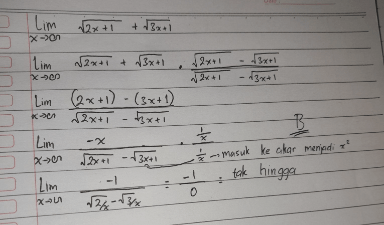 Lim x→∞ √2x+1 + √3x+1
Lim x→∞ √2x+1 + √3x+1 . (√2x+1 - √3x+1)/(√2x+1 - √3x+1)
Lim x→∞ ((2x+1) - (3x+1))/(√2x+1 - √3x+1)
B
Lim x→∞ (-x)/(√2x+1 - √3x+1) . (1/x)/(1/x) → masuk ke akar menjadi x²
Lim x→∞ (-1)/(√2/x - √3/x) = -1/0 = tak hingga